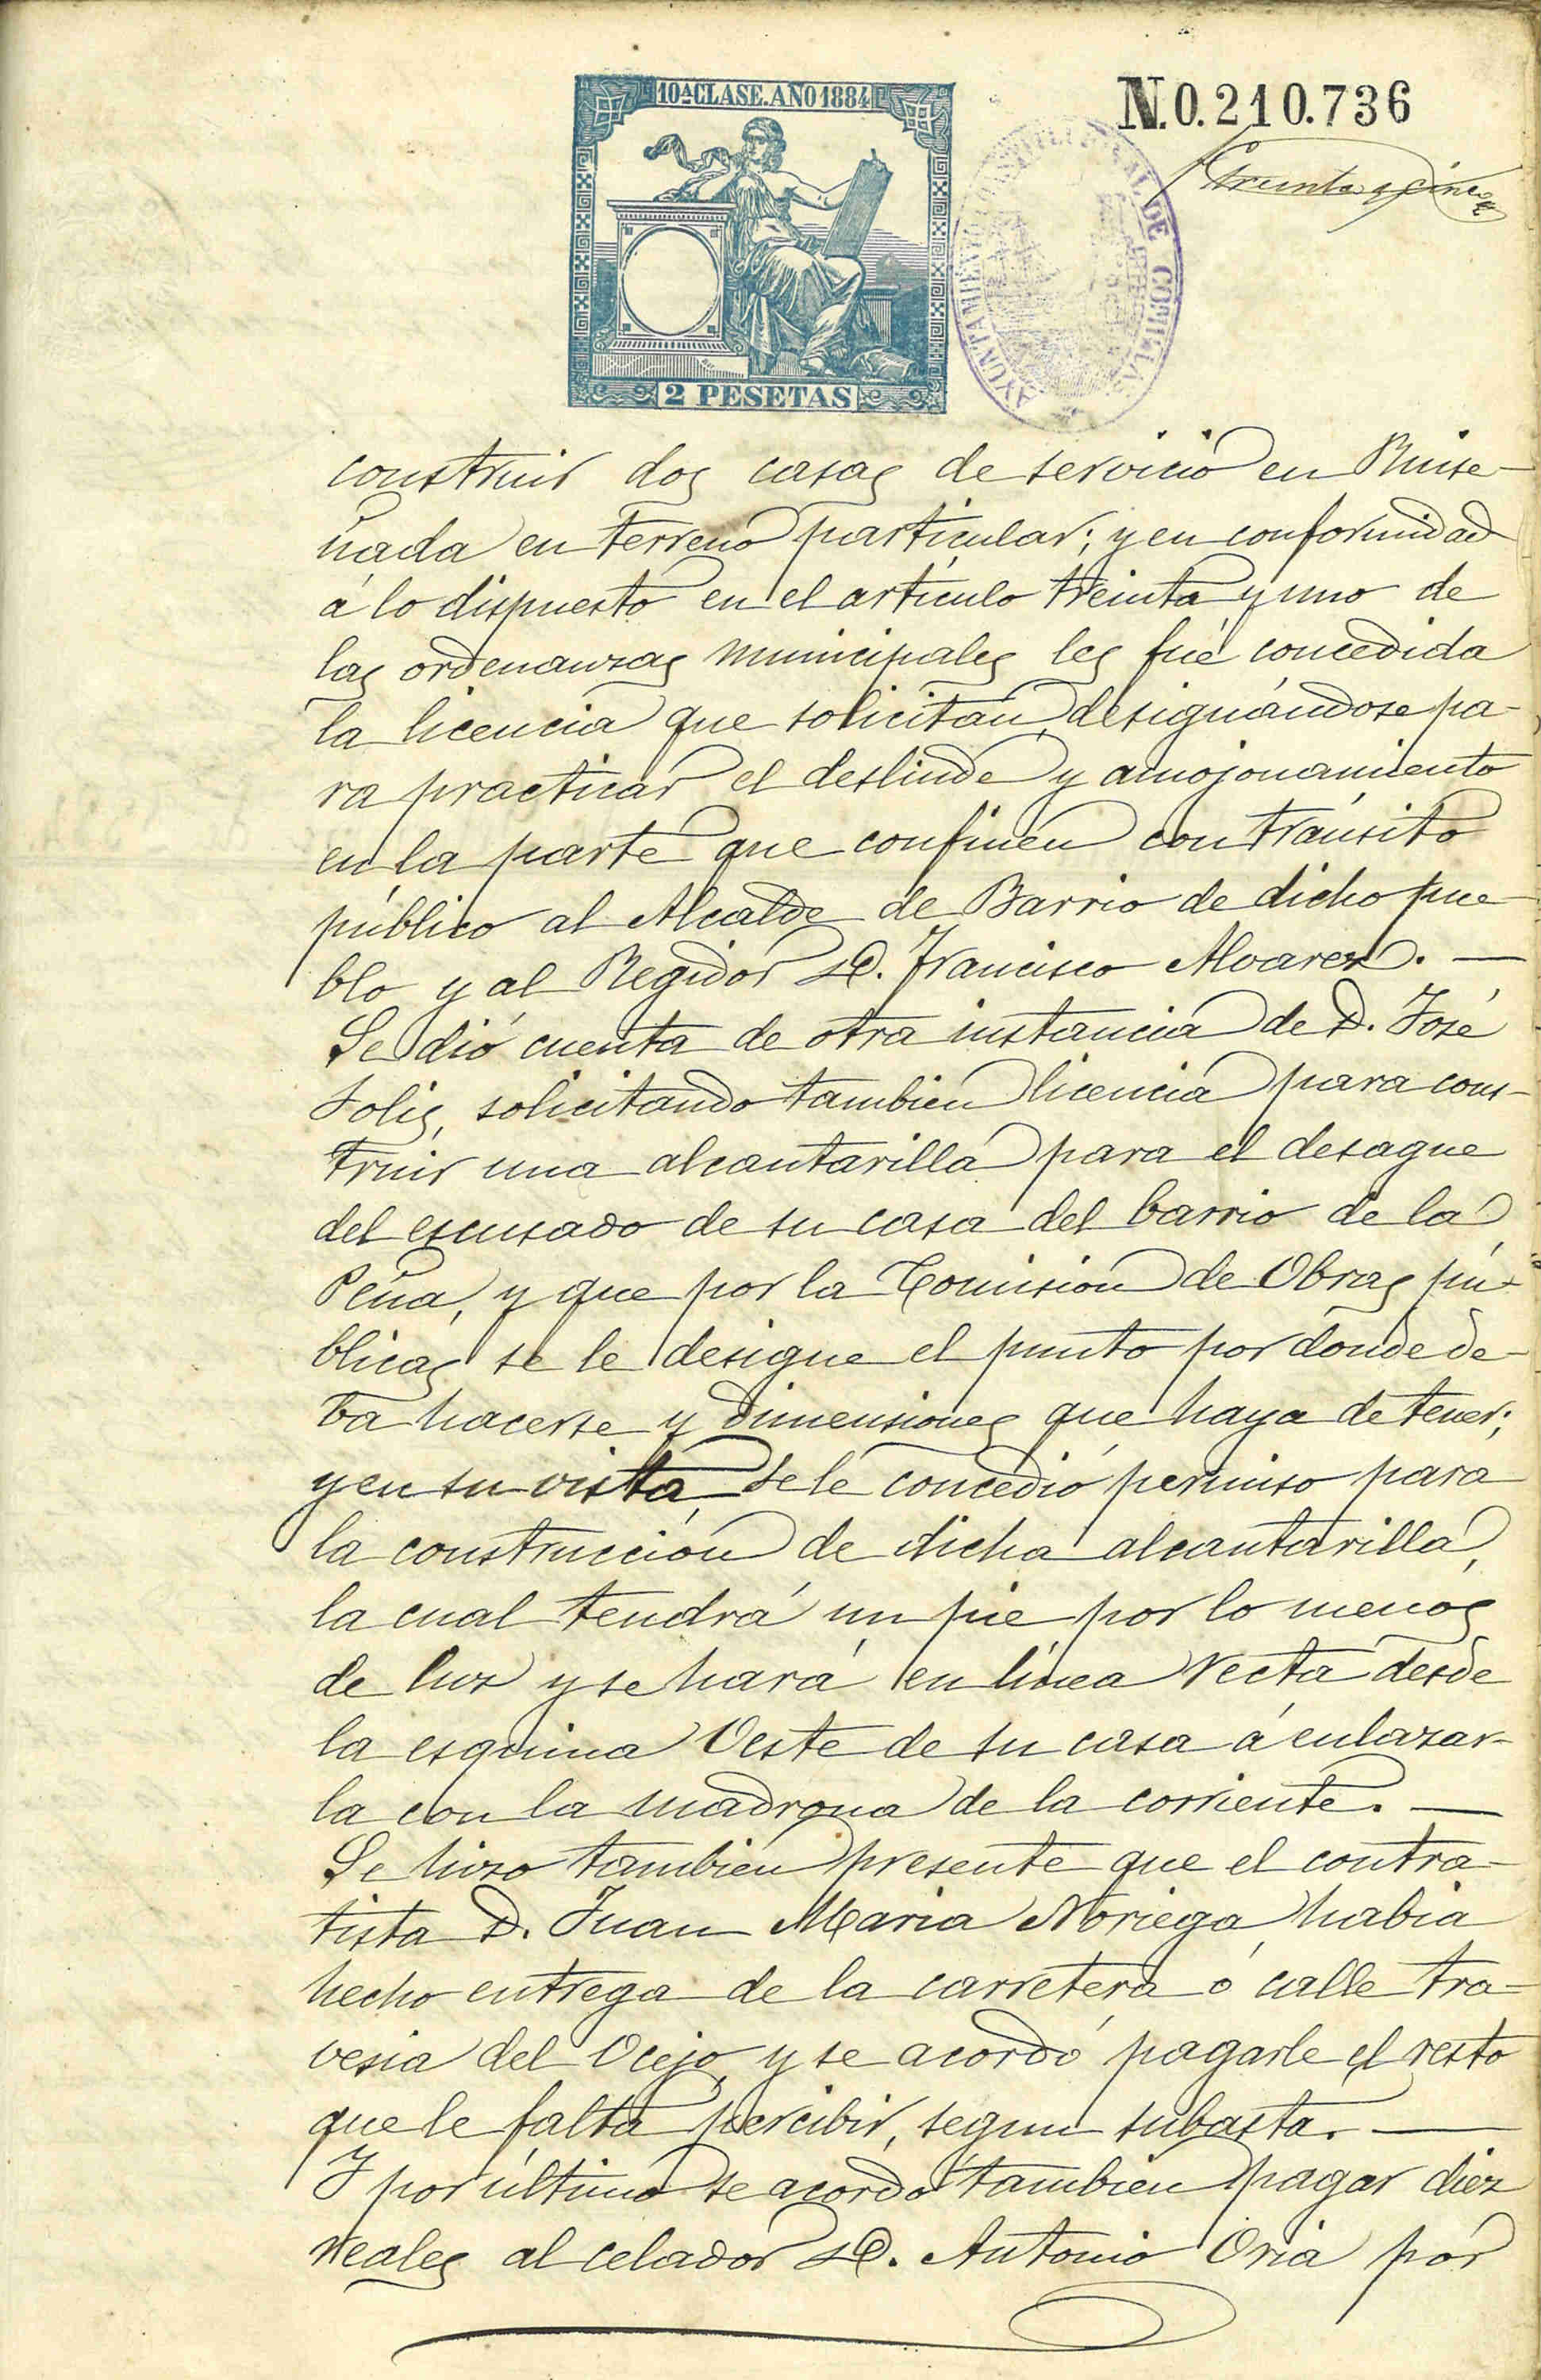 10ª CLASE. AÑO 1884
N.0.210.736
Treinta y cinco
AYUNTAMIENTO CONSTITUCIONAL DE COMILLAS
2 PESETAS
construir dos casas de servicio en Ruise-
ñada en terreno particular; y en conformidad
á lo dispuesto en el artículo treinta y uno de
las ordenanzas municipales les fué concedida
la licencia que solicitan, designándose pa-
ra practicar el deslinde y amojonamiento
en la parte que confinen con tránsito
público al Alcalde de Barrio de dicho pue-
blo y al Regidor D. Francisco Alvarez. —
Se dió cuenta de otra instancia de D. José
Solis, solicitando tambien licencia para cons-
truir una alcantarilla para el desague
del escusado de su casa del barrio de la
Peña, y que por la Comision de Obras pú-
blicas se le designe el punto por donde de-
ba hacerse y dimensiones que haya de tener;
y en su vista, se le concedió permiso para
la construcción de dicha alcantarilla,
la cual tendrá un pie por lo menos
de luz y se hará en línea recta desde
la esquina Oeste de su casa á enlazar-
la con la madrona de la corriente. —
Se hizo tambien presente que el contra-
tista D. Juan Maria Noriega habia
hecho entrega de la carretera ó calle tra-
vesia del Ocejo, y se acordó pagarle el resto
que le falta percibir, segun subasta. —
Y por último se acordó tambien pagar diez
reales al celador D. Antonio Oria por